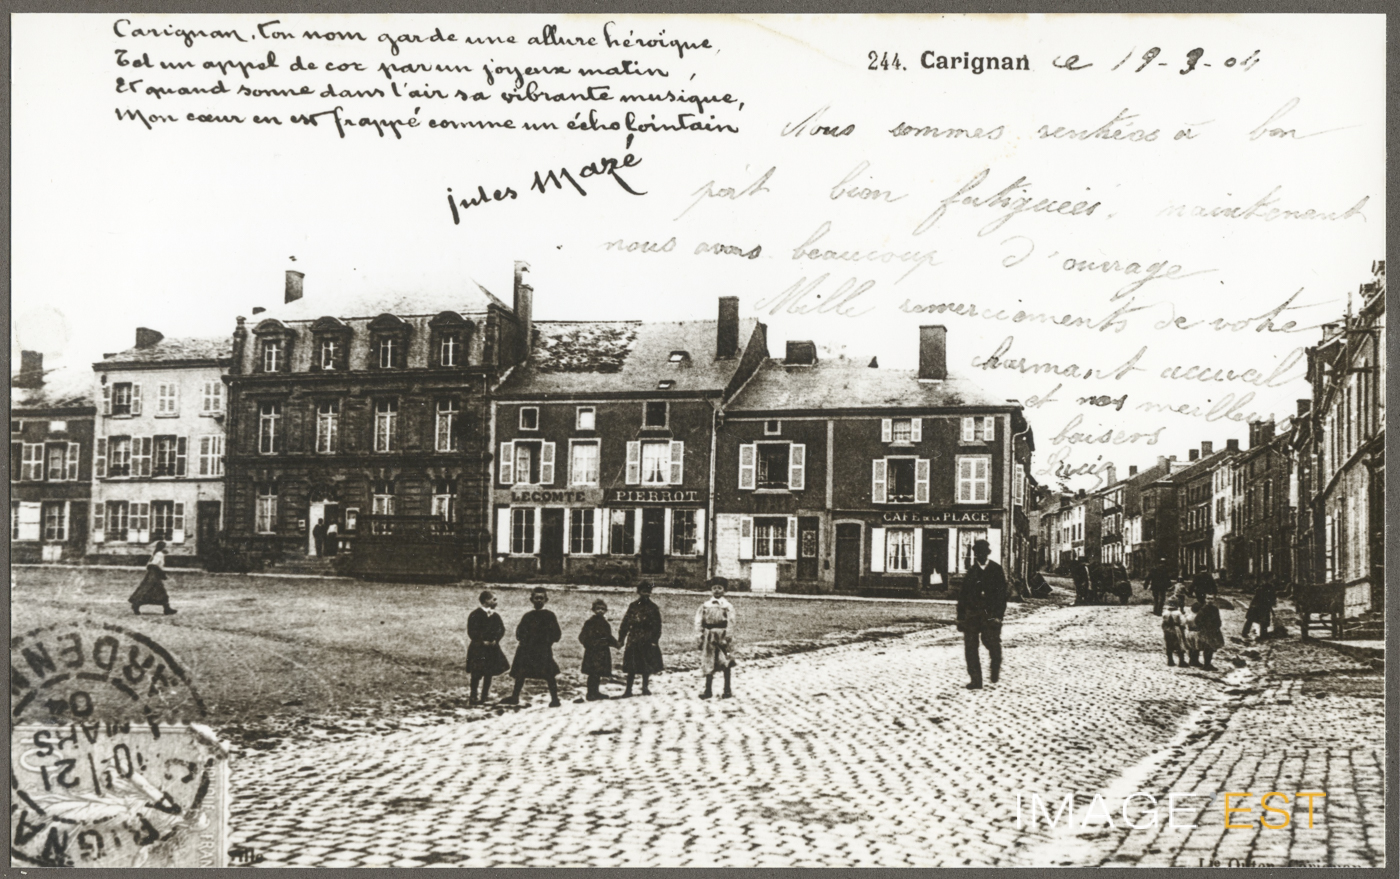 Carignan, ton nom garde une allure héroïque,
Tel un appel de cor par un joyeux matin,
Et quand sonne dans l'air sa vibrante musique,
Mon cœur en est frappé comme un écho lointain
Jules Mazé
244. Carignan le 19-3-04
Nous sommes rentrées à bon
port bien fatiguées, maintenant
nous avons beaucoup d'ouvrage
Mille remerciements de votre
charmant accueil
et nos meilleurs
baisers
LECOMTE
PIERROT
CAFE DE LA PLACE
ARDEN
04
MARS
21
CARIGNA
IMAGE EST